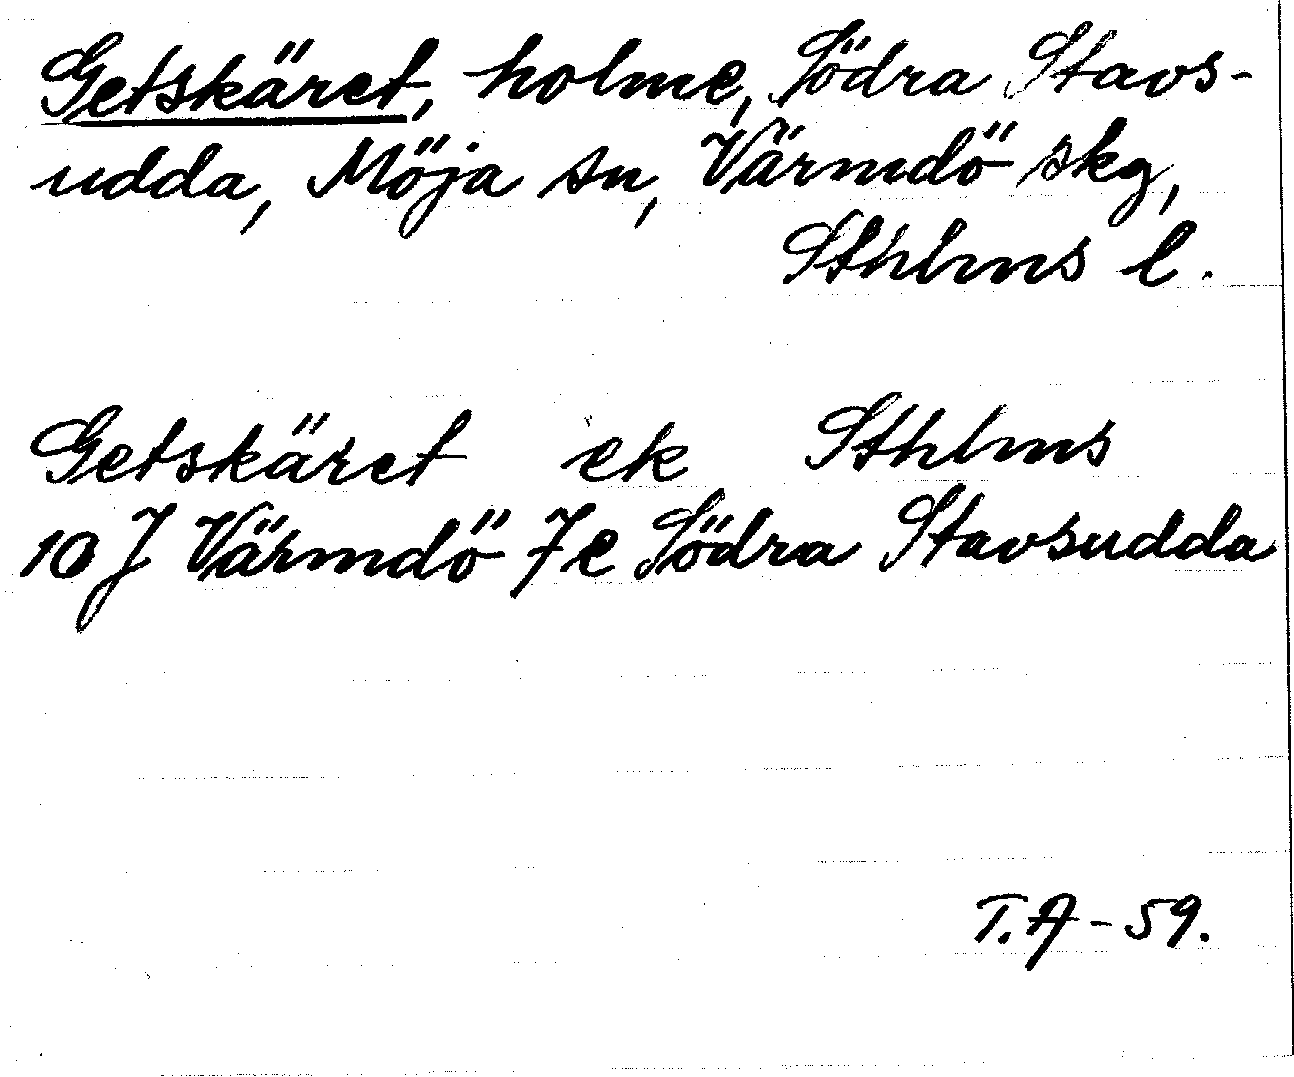 Getskäret, holme, Södra Stavs-
udda, Möja sn, Värmdö skg,
Sthlms l.
Getskäret ek Sthlms
10 J Värmdö 7e Södra Stavsudda
T.A-59.